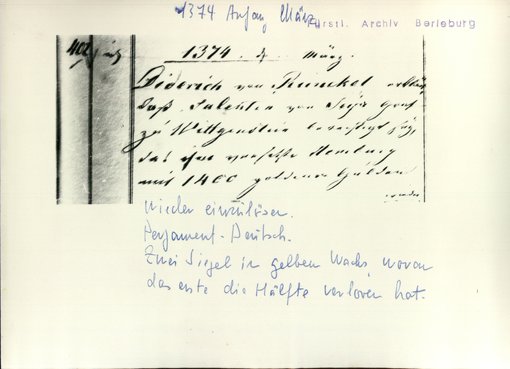 1374 Anfang März
Fürstl. Archiv Berleburg
402
1374. März.
Diderich von Runckel erklärt
daß Salentin von Seyn Graf
zu Wittgenstein berechtigt sey,
das ihm versetzte Homburg
mit 1400 goldenen Gulden
wieder
wieder einzulösen.
Pergament - Deutsch.
Zwei Siegel in gelben Wachs, wovon
das erste die Hälfte verloren hat.